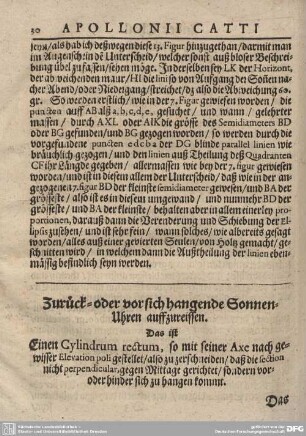 30 APOLLONII CATTI
seyn/als hab ich deßwegen diese 13. Figur hinzugethan/darmit man
im Augenschein de Unterscheid/welcher sonst auß blosser Beschreibung
übel zufassen/sehen möge. In derselben sey LK der Horizont,
der ab weichdaran
Abend/oder Niedergang/streichet/ die Abweichung 60.
gr. So werden erstlich/wie in der 7. Figur gewiesen worden/die
puncten auff AB als a, b, c, d, e, gesucht/und wann/gelehrter
massen/durch AKL oder AIK die grösse des Semidiameters BD
oder BG gefunden/und BG gezogen worden/so werden durch die
vorgefundene puncten edcba der DG blinde parallel linien wie
bräuchlich gezogen/und den linien auß Theilung deß Quadranten
CF ihr Längde gegeben/allermassen wie bey der 7. figur gewiesen
worden/und ist in diesem allem der Unterscheid/daß wie in der angezogenen
7. figur BD der kleinste semidiameter gewesen/und BA der
grösseste/also ist in diesem umgewand/und nunmehr BD der
grösseste/und BA der kleinste/behalten aber in allem einerley proportionen,
darauß dann die Verenderung und Schiebung der Ellipsis
zusehen/und ist sehr fein/wann solches/wie albereits gesagt
worden/alles auß einer gevierten Seulen/von Holtz gemacht/geschnitten
wird/in welchem dann die Außtheilung der linien ebenmässig
befindlich seyn werden.
Zurück- oder vor sich hangende Sonnen-
Uhren auffzureissen.
Das ist
Einen Cylindrum rectum, so mit seiner Axe nach gewisser
Elevation poli gestellet/also zu zerschneiden/daß die section
nicht perpendicular, gegen Mittage gerichtet/sondern vor-
oder hinder sich zu hangen kommt.
Das